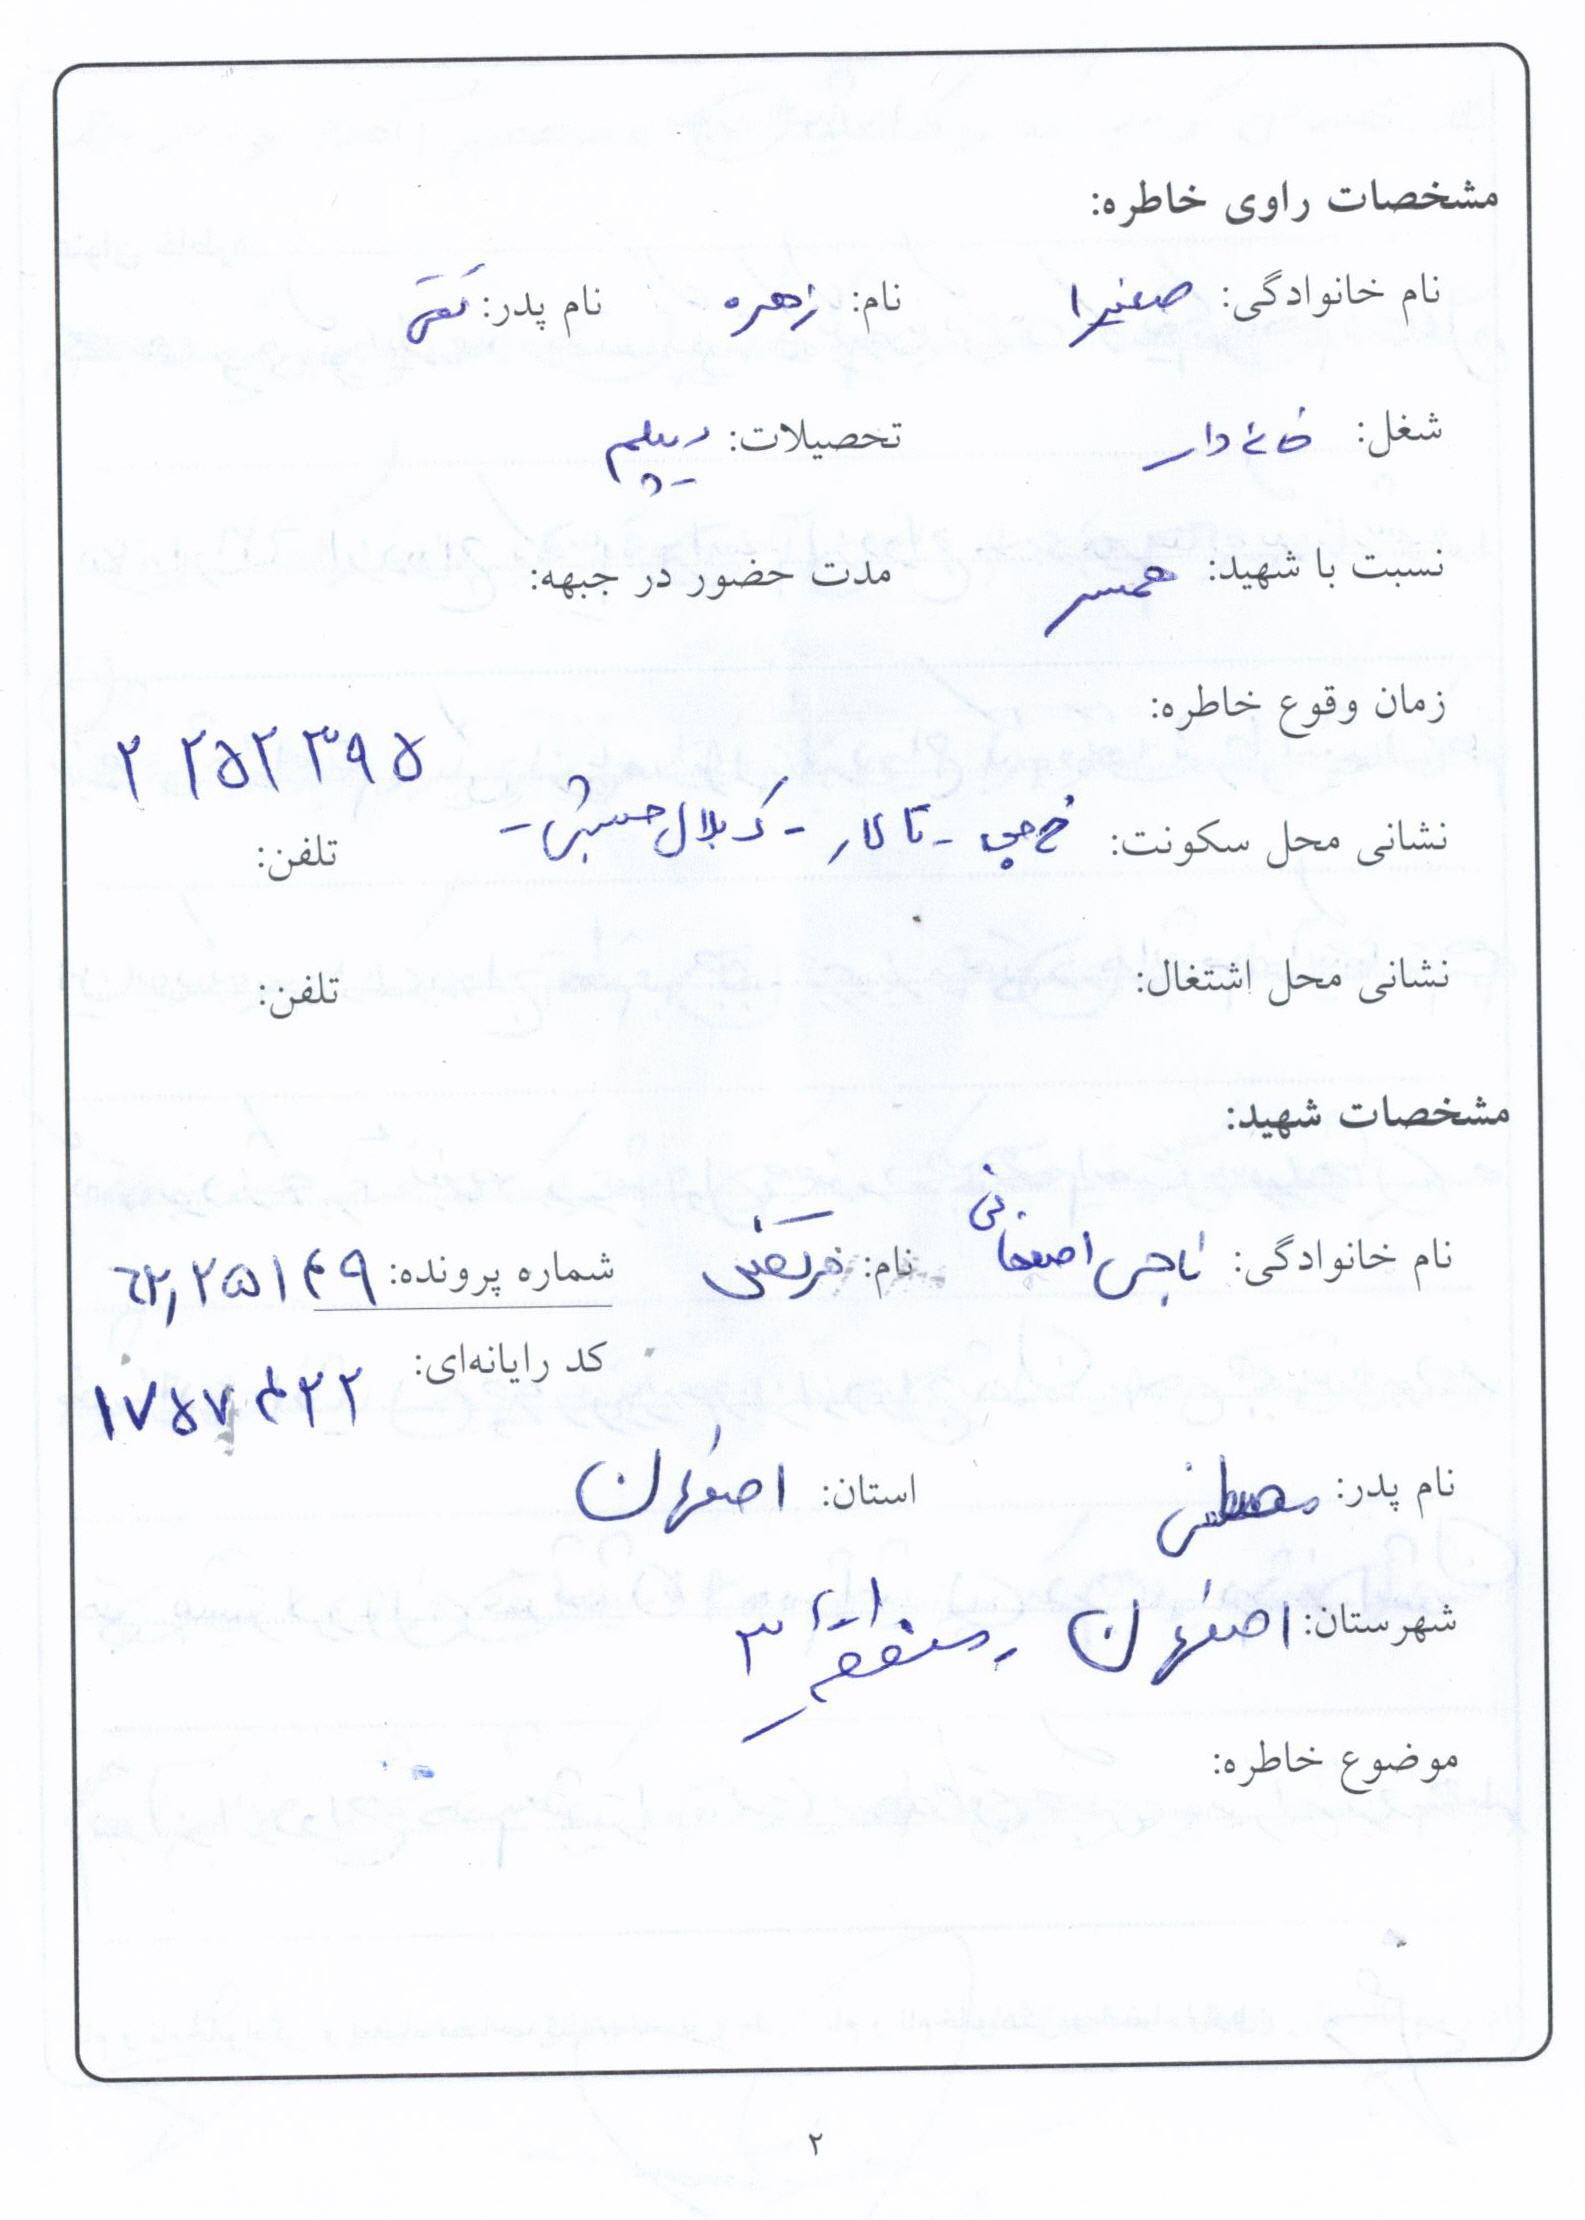 مشخصات راوی خاطره:
نام خانوادگی: صغیرا نام: زهره نام پدر: تقی
شغل: خانه دار تحصیلات: دیپلم
نسبت با شهید: همسر مدت حضور در جبهه:
زمان وقوع خاطره:
۲۲۵۲۳۹۵
نشانی محل سکونت: - تالار - ک بلال حبشی - تلفن:
نشانی محل اشتغال: تلفن:
مشخصات شهید:
نام خانوادگی: ناجی اصفهانی نام: مرتضی شماره پرونده: ۶۲,۲۵۱۴۹
کد رایانه‌ای: ۱۷۵۷۴۲۲
نام پدر: مصطفی استان: اصفهان
شهرستان: اصفهان - منطقه ۳
موضوع خاطره:
۲